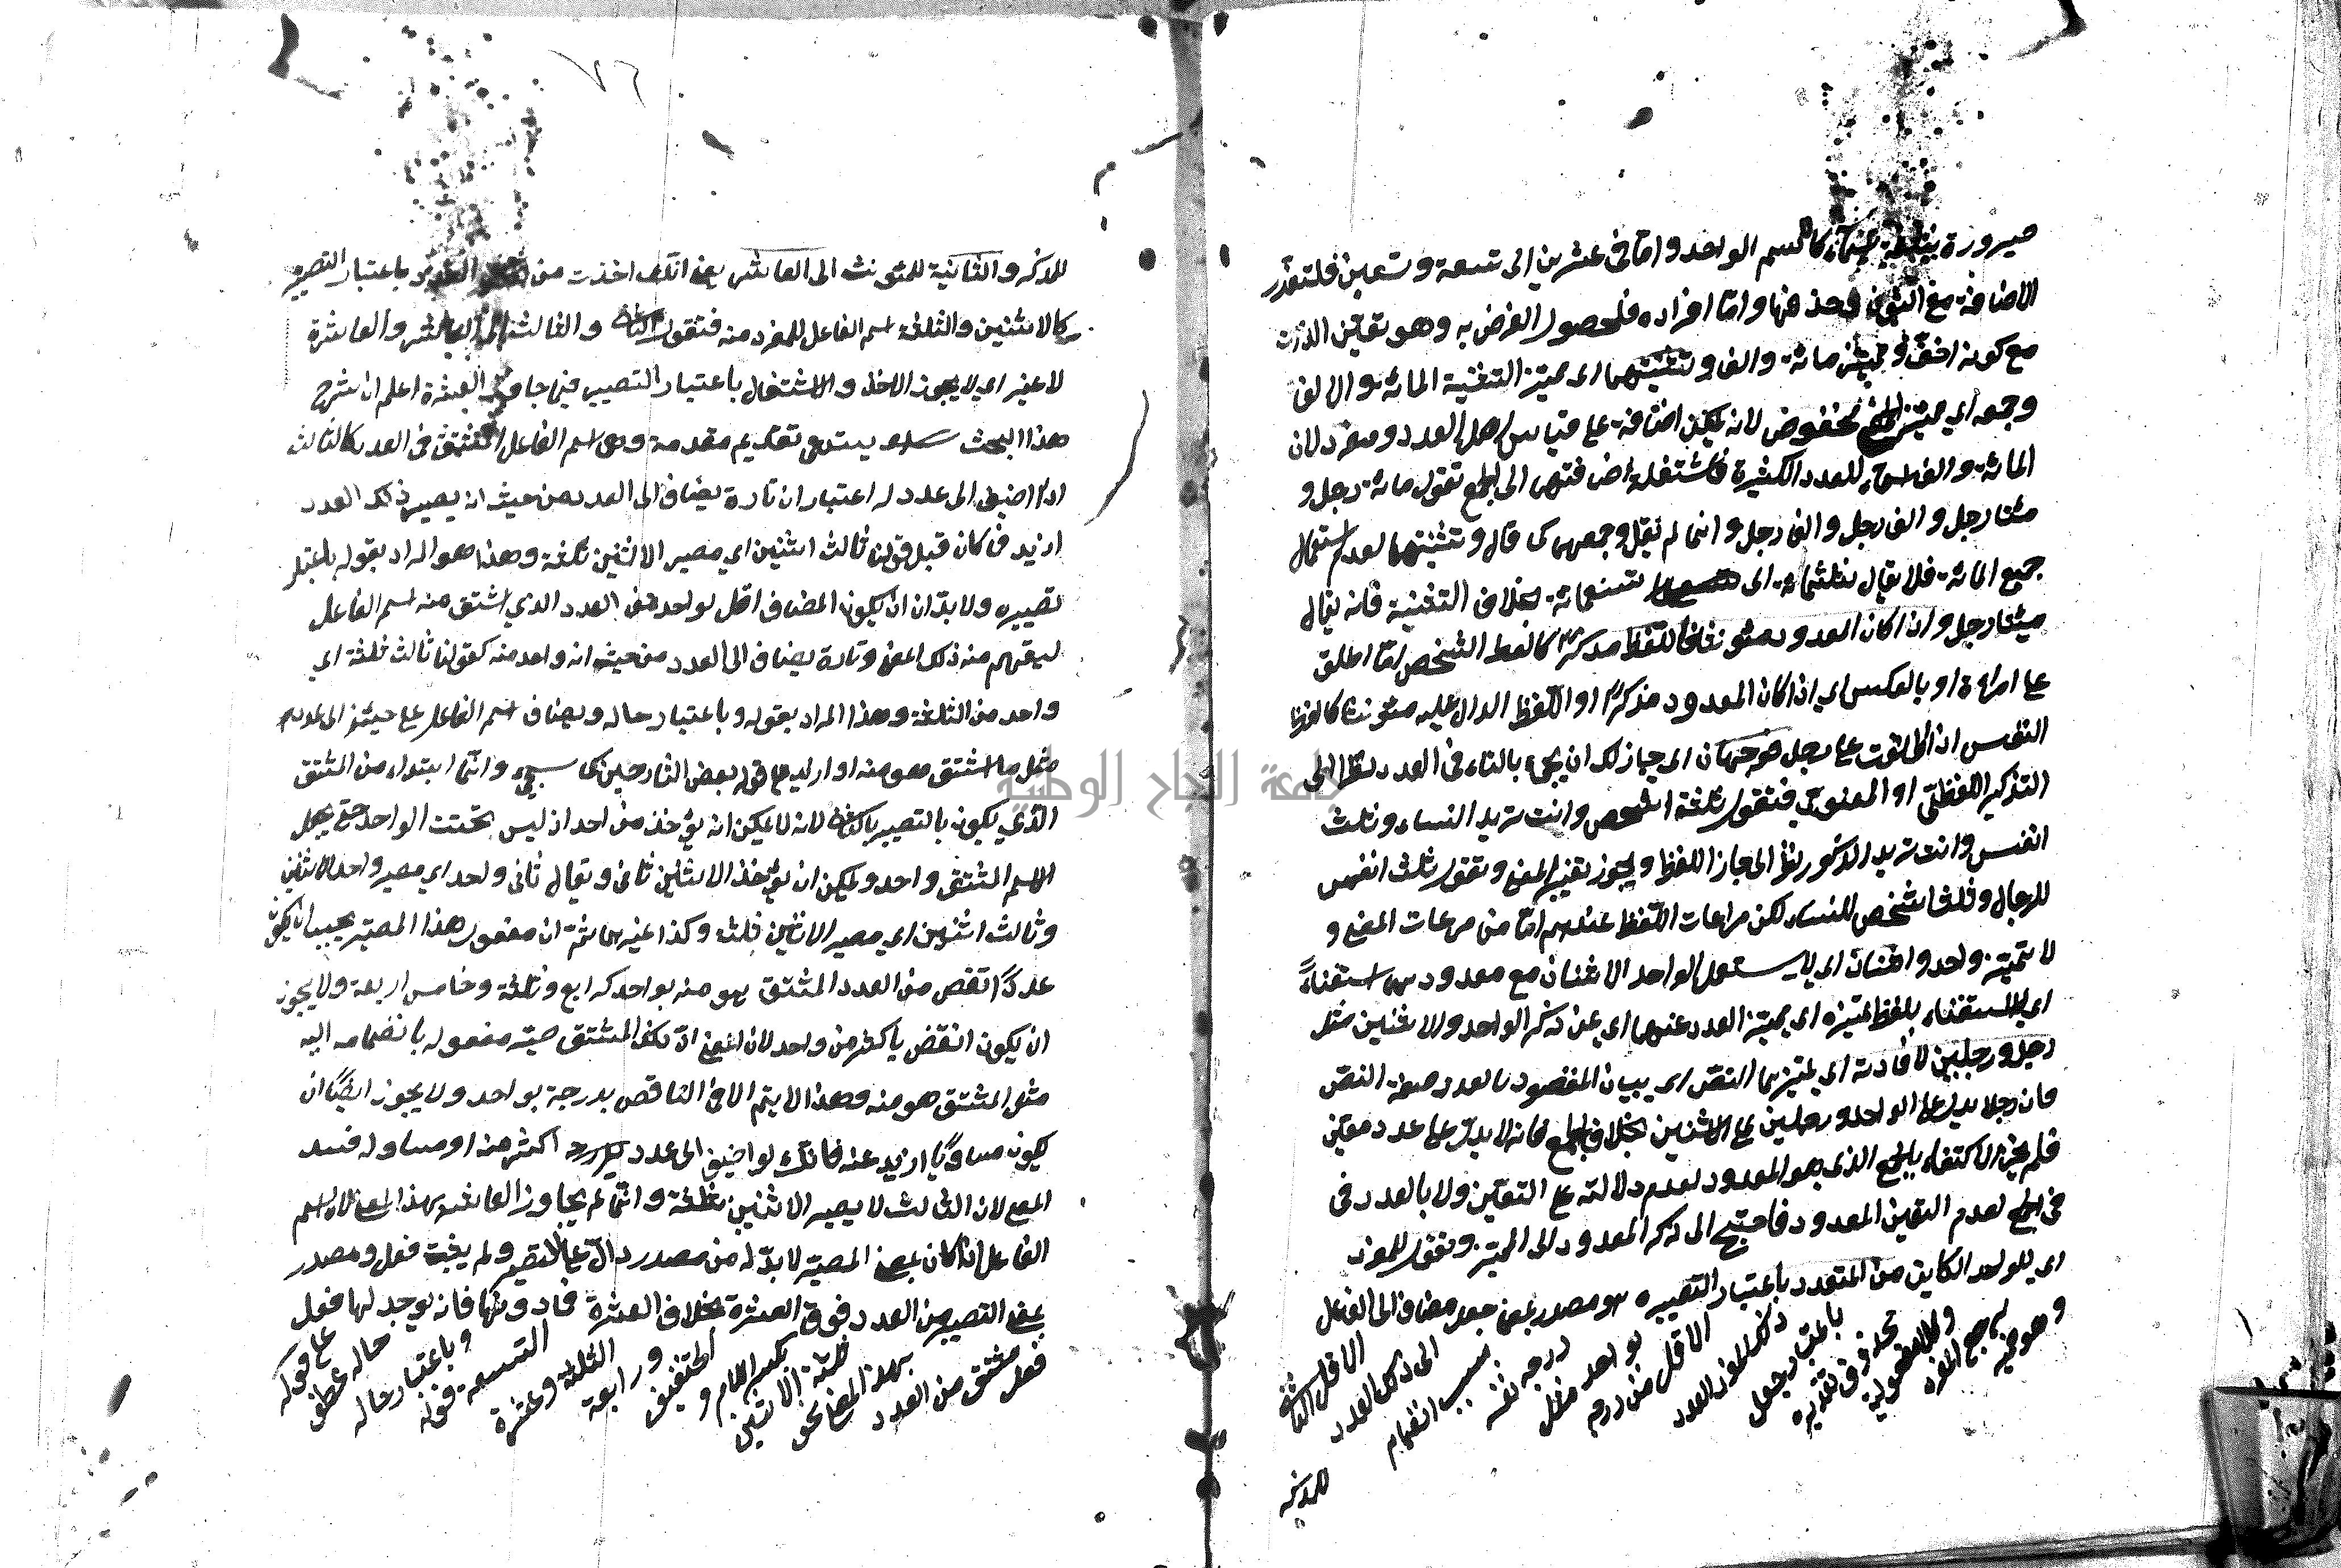 صيرورة ثلثة اسماء كالاسم الواحد واما فى عشرين الى تسعة وتسعين فلتعذر
الاضافة مع النون وحذفها واما افراده فلحصول الغرض به وهو تعيّن الذات
مع كونه اخفّ ومميّز مائة والف وتثنيتهما اى مميّز التثنية المائة والالف
وجمعه اى مميّز مخفوض لانه يمكن اضافة على قياس اصل العدد ومفرد لان
المائة والف اسماء للعدد الكثيرة فاستثقل اضافتهما الى الجمع تقول مائة رجل و
مئتا رجل والف رجل والفا رجل وانما لم يقل وجمعهما كما قال وتثنيتهما لعدم استعمال
جميع المائة فلا يقال ثلثمائة اى تسعمائة بخلاف التثنية فانه يقال
ميئتا رجل واذا كان المعدود مؤنثا واللّفظ مذكرًا كالفظ الشخص اذا اطلق
على امراءة او بالعكس اى اذا كان المعدود مذكرًا واللّفظ الدال عليه مؤنثا كالفظ
النفس اذا اطلقت على رجل فوجهان اى جاز لك ان يجئ بالتاء فى العدد نظرا الى
التذكير اللفظىّ او المعنوىّ فتقول ثلثة اشخص وانت تريد النساء وثلث
انفس وانت تريد الذكور نظرا الى جاز اللفظ ويجوز تغير المعنى وتقول ثلث انفس
للرجال وثلث اشخص للنساء لكن مراعات اللّفظ عندهم امّا من مرعات المعنى و
لا تميّز واحد واثنان اى لا يستعمل الواحد الاثنان مع معدودهما استغناءً
اى للاستغناء بلفظ تميّزه اى مميّز العدد عنهما اى عن ذكر الواحد والاثنين مثل
رجل ورجلين لافادته اى لمميّزهما النصّ اى بيان المقصود بالعدد صفة النصّ
فان رجلا يدل على الواحد ورجلين على الاثنين بخلاف الجمع فانه لا يدلّ على عدد معيّن
فلم يجز الاكتفاء بالجمع الذى هو المعدود لعدم دلالته على التعيّن ولا بالعدد فى
فى الجمع لعدم التعين المعدود فاحتيج الى ذكر المعدود الى المميّز وتقول للمفرد
اى للواحد الكاين من المتعدد باعتبار التصييره هو مصدر بمعنى جعل مضاف الى الفاعل
وهو فيه
يرجع المفرد
والمفعولية
محذوف تقديره
باعتبار جعل
ذلك المفرد العدد
الاقل من درجه
بواحد مثل
درجه نفسه
بسبب انضمام
الى ذلك العدد
الاقل الثانى
للمذكر
٧٦
للمذكر والثانية للمؤنث الى العاشر يعنى انّك اخذت من باعتبار التصيير
كالاثنين والثلثة اسم الفاعل للمفرد منه فتقول الثانى والثالث الى العاشر والعاشرة
لا غير اى لا يجوز الاخذ والاشتقاق باعتبار التصيير فيما جاوز العشرة اعلم ان شرح
هذا البحث يستدعى تقديم مقدمة وهى اسم الفاعل المشتق فى العدد كالثالث
اذا اضيف الى عدد له اعتباران تارة يضاف الى العدد من حيث انه يصيّر ذلك العدد
ازيد فما كان قبل قولنا ثالث اثنين اى مصير الاثنين ثلثة وهذا هو المراد بقوله باعتبار
تصييره ولا بدّ ان ان يكون المضاف اقل لواحد من العدد الذى اشتق منه اسم الفاعل
ليفهم منه ذلك المعنى وتارة يضاف الى العدد من حيث انه واحد منه كقولنا ثالث ثلثة اى
واحد من الثلثة وهذا المراد بقوله وباعتبار حاله ويضاف اسم الفاعل على حينئذ الى عدد
مثل ما اشتق هو منه او ازيد على قول بعض الشارحين كما سيجئ وانّما ابتداء من المشتق
الذى يكون بالتصيير بالثانى لانه لا يمكن انه يؤخذ من احد اذ ليس تحت الواحد حتى يجعل
الاسم المشتق واحد ويمكن ان يؤخذ الاثنين ثانى ويقال ثانى واحد اى مصير واحد الاثنين
وثالث اثنين اى مصير الاثنين ثلثة وكذا غيرهما ثمّ ان مفعول هذا المصيّر يجب ان يكون
عددًا انقص من العدد المشتق هو منه بواحد كرابع وثلثة وخامس اربعة ولا يجوز
ان يكون انقص باكثر من واحد لان المعنى انّ ذلك المشتق صيّر مفعوله بانضمامه اليه
مثل المشتق هو منه وهذا لا يتم الا فى الناقص بدرجة بواحد ولا يجوز ايضًا ان
يكون مساويًا ازيد عنه فانّك لو اضيف الى عدد اكثر منه او مساوله فسد
المعنى لان الثالث لا يصير الاثنين ثلثة وانّما لم يجاوز العاشر بهذا المعنى لان اسم
الفاعل اذا كان بمعنى المصيّر لا بدّ له من مصدر دالّ على التصيير ولم يثبت فعل ومصدر
بمعنى التصيير من العدد فوق العشرة بخلاف العشرة فما دونها فانه يوجد لها فعل
فعل مشتق من العدد
بهذا المعنى نحو
ثلثة الاثنين
بكسر اللام و
التخفيف
ورابعة
الثلثة وعشرة
التسعة قوله
وباعتبار حاله
حاله عطف
على قوله
جامعة النجاح الوطنية